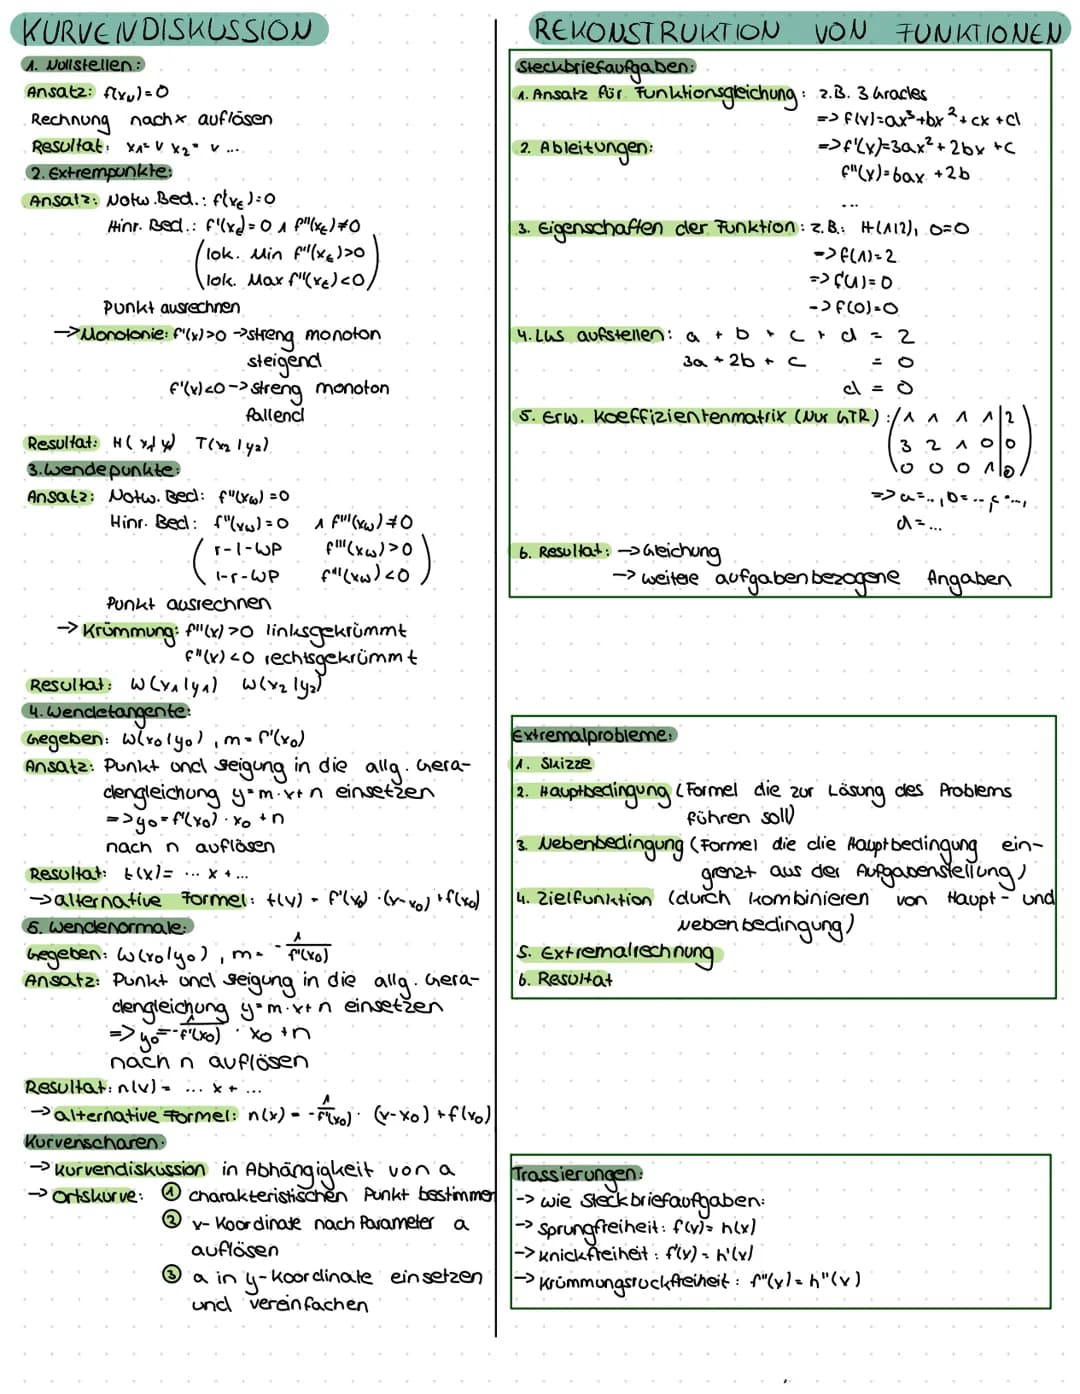 KURVENDISKUSSION
1. Nullstellen:
Ansatz: f(x_N)=0
Rechnung nach x auflösen
Resultat: x₁= v x₂= v ...
2. Extrempunkte:
Ansatz: Notw. Bed.: f'(x_E)=0
Hinr. Bed.: f'(x_E)=0 ∧ f''(x_E)≠0
(lok. Min f''(x_E)>0
lok. Max f''(x_E)<0)
Punkt ausrechnen
→ Monotonie: f'(x)>0 → streng monoton
steigend
f'(x)<0 -> streng monoton
fallend
Resultat: H(x₁|y₁) T(x₂|y₂)
3. Wendepunkte:
Ansatz: Notw. Bed: f''(x_W)=0
Hinr. Bed: f''(x_W)=0 ∧ f'''(x_W)≠0
(r-l-WP f'''(x_W)>0
l-r-WP f'''(x_W)<0)
Punkt ausrechnen
→ Krümmung: f''(x)>0 linksgekrümmt
f''(x)<0 rechtsgekrümmt
Resultat: W(x₁|y₁) W(x₂|y₂)
4. Wendetangente:
Gegeben: W(x₀|y₀), m=f'(x₀)
Ansatz: Punkt und Steigung in die allg. Gera-
dengleichung y=m·x+n einsetzen
=> y₀=f'(x₀)·x₀+n
nach n auflösen
Resultat: t(x)= ... x + ...
→ alternative Formel: t(x) = f'(x₀)·(x-x₀)+f(x₀)
5. Wendenormale:
Gegeben: W(x₀|y₀), m= -1/f'(x₀)
Ansatz: Punkt und Steigung in die allg. Gera-
dengleichung y=m·x+n einsetzen
=> y₀=-1/f'(x₀) · x₀+n
nach n auflösen
Resultat: n(x)= ... x + ...
→ alternative Formel: n(x) = -1/f'(x₀) · (x-x₀)+f(x₀)
Kurvenscharen:
→ Kurvendiskussion in Abhängigkeit von a
→ Ortskurve: ① charakteristischen Punkt bestimmen
② x-Koordinate nach Parameter a
auflösen
③ a in y-Koordinate einsetzen
und vereinfachen
REKONSTRUKTION VON FUNKTIONEN
Steckbriefaufgaben:
1. Ansatz für Funktionsgleichung: z.B. 3 Grades
=> f(x)=ax³+bx²+cx+d
2. Ableitungen: => f'(x)=3ax²+2bx+c
f''(x)=6ax+2b
...
3. Eigenschaften der Funktion: z.B.: H(1|2), 0=0
=> f(1)=2
=> f'(1)=0
-> f(0)=0
4. LGS aufstellen: a + b + c + d = 2
3a + 2b + c = 0
d = 0
5. Erw. Koeffizientenmatrix (Nur GTR): (1 1 1 1|2
3 2 1 0|0
0 0 0 1|0)
=> a=.., b=.. c=...,
d=...
6. Resultat: → Gleichung
→ weitere aufgabenbezogene Angaben
Extremalprobleme:
1. Skizze
2. Hauptbedingung (Formel die zur Lösung des Problems
führen soll)
3. Nebenbedingung (Formel die die Hauptbedingung ein-
grenzt aus der Aufgabenstellung)
4. Zielfunktion (durch kombinieren von Haupt- und
Nebenbedingung)
5. Extremalrechnung
6. Resultat
Trassierungen:
-> wie Steckbriefaufgaben:
-> Sprungfreiheit: f(x)=h(x)
-> Knickfreiheit: f'(x)=h'(x)
-> Krümmungsruckfreiheit: f''(x)=h''(x)